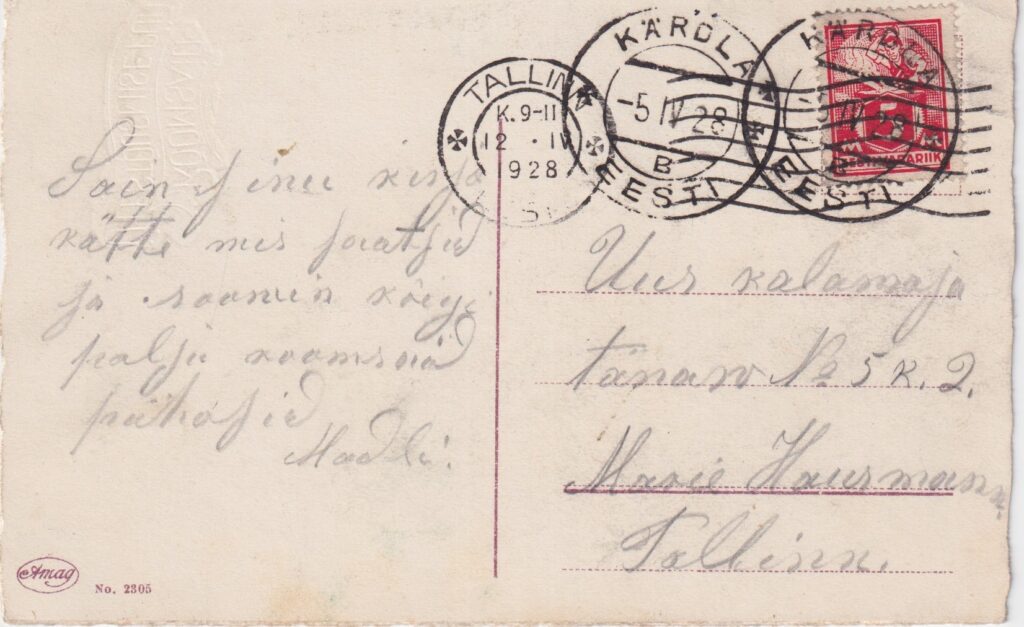 KÄRDLA
-5 IV 28
B
EESTI
KÄRDLA
-5 IV 28
EESTI
5
EESTI VABARIIK
TALLINN
K. 9-11
12 . IV
1928
Sain Sinu kirja
kätte mis saatsid
ja soovin kõige
palju roomsaid
pühasid
Madli.
Uus kalamaja
tänaw № 5 K. 2.
Marie Hausmann.
Tallinn.
Amag
No. 2305